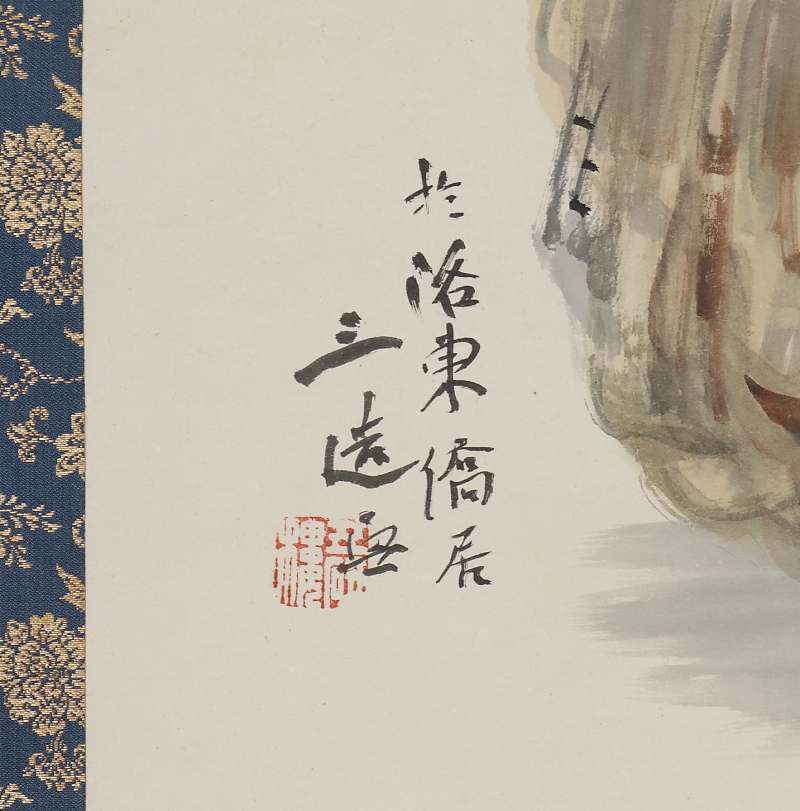 於洛東僑居
三造